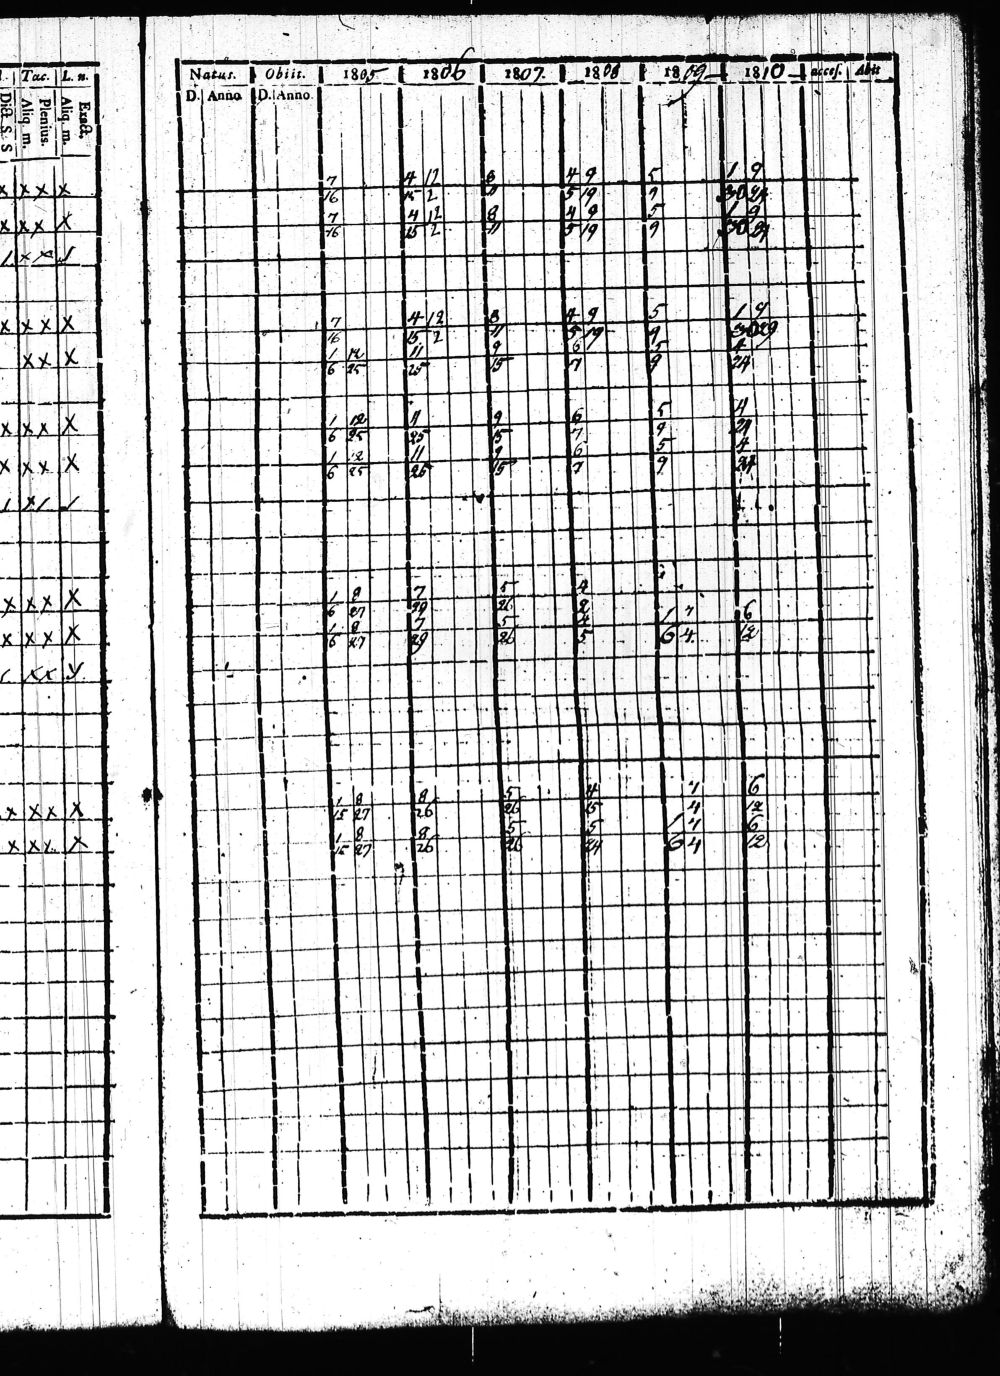 Tac. L. n.
Dict. S. S
Aliq. m.
Plenius.
Aliq. m.
Exact.
Natus. Obiit. 1805 1806 1807. 1808 1809 1810 acces. Abit
D. Anno D. Anno
x x x x
7 4 12 8 4 9 5 1 9
16 15 2 11 5 19 9 30 29
x x x X
7 4 12 8 4 9 5 1 9
16 15 2 11 5 19 9 30 29
x x x X
7 4 12 8 4 9 5 1 9
16 15 2 11 5 19 9 30 29
x x X
1 12 11 9 6 5 4
6 25 25 15 7 9 24
x x x X
1 12 11 9 6 5 4
6 25 25 15 7 9 24
x x x X
1 12 11 9 6 5 4
6 25 25 15 7 9 24
x x x X
1 8 7 5 4
6 27 29 26
x x x X
1 8 7 5 4 1 7 6
6 27 29 26 5 6 4 12
x x x X
1 8 8 5 4 7 6
15 27 26 26 5 4 12
x x x X
1 8 8 5 5 1 7 6
15 27 26 26 24 6 4 12